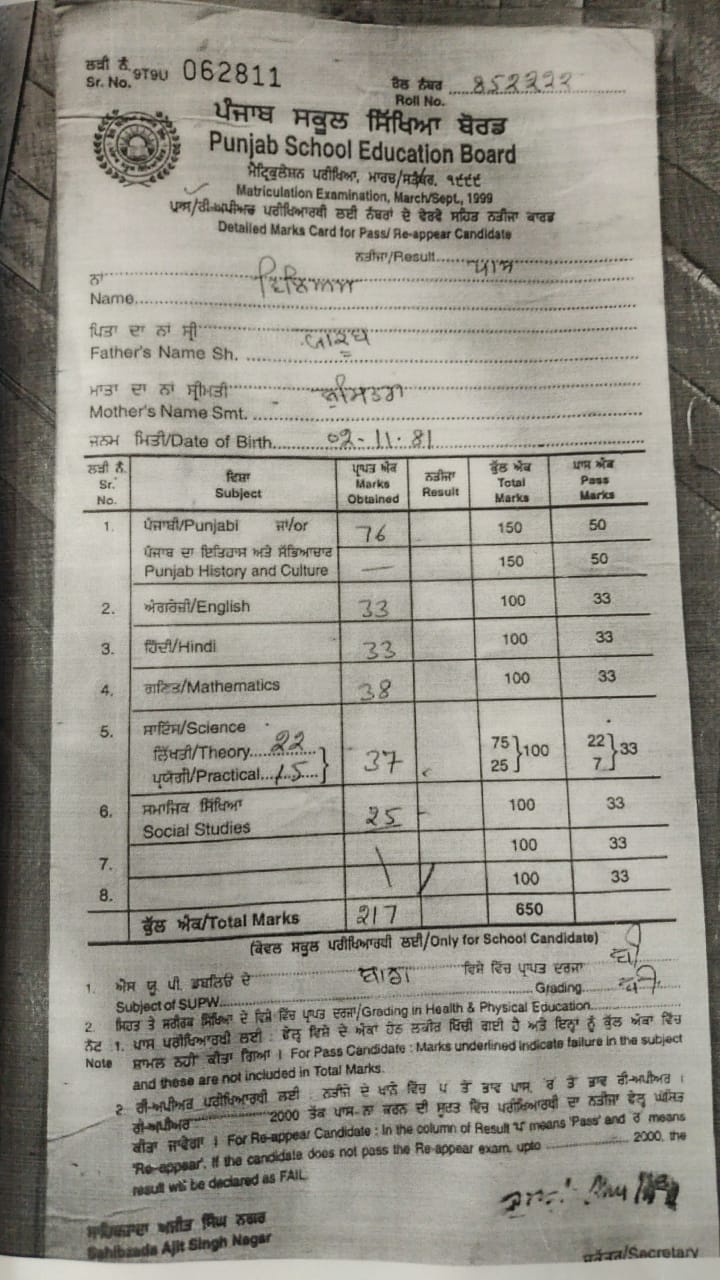 ਲੜੀ ਨੰ. 9T9U 062811 ਰੋਲ ਨੰਬਰ
Sr. No. Roll No. 852222
ਪੰਜਾਬ ਸਕੂਲ ਸਿੱਖਿਆ ਬੋਰਡ
Punjab School Education Board
ਮੈਟ੍ਰਿਕੂਲੇਸ਼ਨ ਪਰੀਖਿਆ, ਮਾਰਚ/ਸਤੰਬਰ, ੧੯੯੯
Matriculation Examination, March/Sept., 1999
ਪਾਸ/ਰੀ-ਅਪੀਅਰ ਪਰੀਖਿਆਰਥੀ ਲਈ ਨੰਬਰਾਂ ਦੇ ਵੇਰਵੇ ਸਹਿਤ ਨਤੀਜਾ ਕਾਰਡ
Detailed Marks Card for Pass/ Re-appear Candidate
ਨਤੀਜਾ/Result ਪਾਸ
ਨਾਂ
Name
ਪਿਤਾ ਦਾ ਨਾਂ ਸ੍ਰੀ
Father's Name Sh.
ਮਾਤਾ ਦਾ ਨਾਂ ਸ੍ਰੀਮਤੀ
Mother's Name Smt.
ਜਨਮ ਮਿਤੀ/Date of Birth 02-11-81
ਲੜੀ ਨੰ. ਵਿਸ਼ਾ ਪ੍ਰਾਪਤ ਅੰਕ ਨਤੀਜਾ ਕੁੱਲ ਅੰਕ ਪਾਸ ਅੰਕ
Sr. No. Subject Marks Obtained Result Total Marks Pass Marks
1. ਪੰਜਾਬੀ/Punjabi ਜਾਂ/or 76 150 50
ਪੰਜਾਬ ਦਾ ਇਤਿਹਾਸ ਅਤੇ ਸੱਭਿਆਚਾਰ
Punjab History and Culture — 150 50
2. ਅੰਗਰੇਜ਼ੀ/English 33 100 33
3. ਹਿੰਦੀ/Hindi 33 100 33
4. ਗਣਿਤ/Mathematics 38 100 33
5. ਸਾਇੰਸ/Science
ਲਿਖਤੀ/Theory 22 37 75 100 22 33
ਪ੍ਰਯੋਗੀ/Practical 15 25 7
6. ਸਮਾਜਿਕ ਸਿੱਖਿਆ
Social Studies 25 100 33
7. 100 33
8. 100 33
ਕੁੱਲ ਅੰਕ/Total Marks 217 650
(ਕੇਵਲ ਸਕੂਲ ਪਰੀਖਿਆਰਥੀ ਲਈ/Only for School Candidate)
1. ਐਸ ਯੂ ਪੀ. ਡਬਲਿਓ ਦੇ ਵਿਸ਼ੇ ਵਿੱਚ ਪ੍ਰਾਪਤ ਦਰਜਾ
Subject of SUPW Grading
2. ਸਿਹਤ ਤੇ ਸਰੀਰਕ ਸਿੱਖਿਆ ਦੇ ਵਿਸ਼ੇ ਵਿੱਚ ਪ੍ਰਾਪਤ ਦਰਜਾ/Grading in Health & Physical Education
ਨੋਟ 1. ਪਾਸ ਪਰੀਖਿਆਰਥੀ ਲਈ : ਫੇਲ੍ਹ ਵਿਸ਼ੇ ਦੇ ਅੰਕਾਂ ਹੇਠ ਲਕੀਰ ਖਿੱਚੀ ਗਈ ਹੈ ਅਤੇ ਇਨ੍ਹਾਂ ਨੂੰ ਕੁੱਲ ਅੰਕਾਂ ਵਿੱਚ
Note ਸ਼ਾਮਲ ਨਹੀਂ ਕੀਤਾ ਗਿਆ । For Pass Candidate : Marks underlined indicate failure in the subject
and these are not included in Total Marks.
2. ਰੀ-ਅਪੀਅਰ ਪਰੀਖਿਆਰਥੀ ਲਈ : ਨਤੀਜੇ ਦੇ ਖਾਨੇ ਵਿੱਚ ਪ ਤੋਂ ਭਾਵ ਪਾਸ, 'ਰ' ਤੋਂ ਭਾਵ ਰੀ-ਅਪੀਅਰ ।
ਰੀ-ਅਪੀਅਰ 2000 ਤੱਕ ਪਾਸ ਨਾ ਕਰਨ ਦੀ ਸੂਰਤ ਵਿੱਚ ਪਰੀਖਿਆਰਥੀ ਦਾ ਨਤੀਜਾ ਫੇਲ੍ਹ ਘੋਸ਼ਿਤ
ਕੀਤਾ ਜਾਵੇਗਾ । For Re-appear Candidate : In the column of Result 'ਪ' means 'Pass' and 'ਰ' means
'Re-appear'. If the candidate does not pass the Re-appear exam. upto 2000, the
result will be declared as FAIL.
ਸਾਹਿਬਜ਼ਾਦਾ ਅਜੀਤ ਸਿੰਘ ਨਗਰ
Sahibzada Ajit Singh Nagar
ਸਕੱਤਰ/Secretary